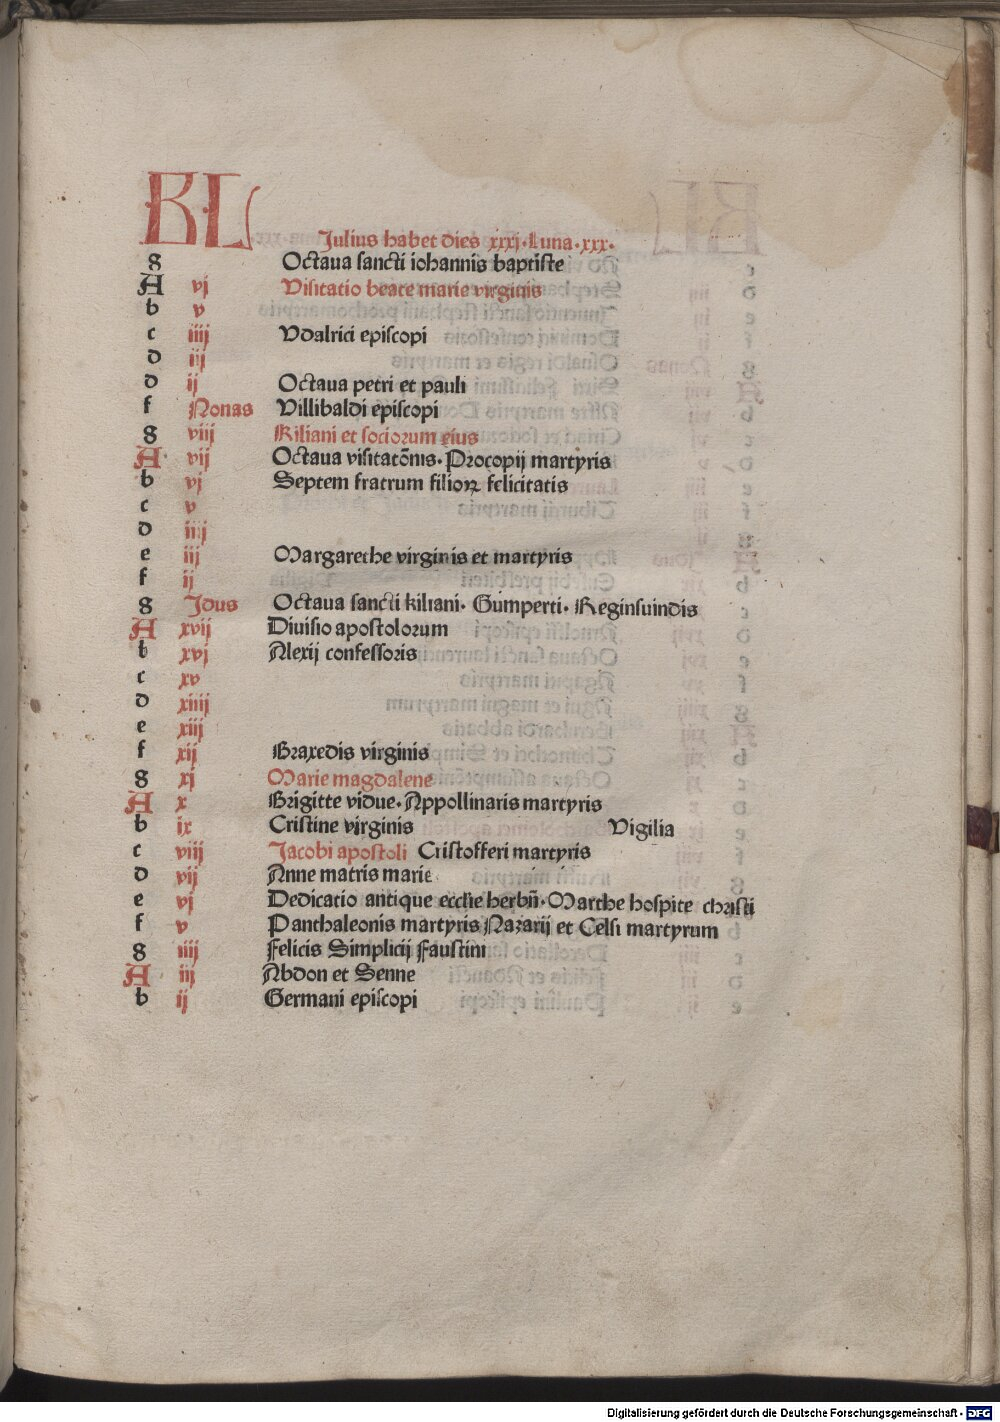 KL
Julius habet dies xxxj·Luna·xxx·
g Octaua sancti iohannis baptiste
A vj Visitatio beate marie virginis
b v
c iiij Vdalrici episcopi
d iij
d ij Octaua petri et pauli
f Nonas Villibaldi episcopi
g viij Kiliani et sociorum eius
A vij Octaua visitatõnis·Procopij martyris
b vj Septem fratrum filioꝝ felicitatis
c v
d iiij
e iij Margarethe virginis et martyris
f ij
g Idus Octaua sancti kiliani· Gumperti· Reginsuindis
A xvij Diuisio apostolorum
b xvj Alexij confessoris
c xv
d xiiij
e xiij
f xij Praxedis virginis
g xj Marie magdalene
A x Brigitte vidue·Appollinaris martyris
b ix Cristine virginis Vigilia
c viij Jacobi apostoli Cristofferi martyris
d vij Anne matris marie
e vj Dedicatio antique ecclie herbñ·Marthe hospite christi
f v Panthaleonis martyris Nazarij et Celsi martyrum
g iiij Felicis Simplicij Faustini
A iij Abdon et Senne
b ij Germani episcopi
Digitalisierung gefördert durch die Deutsche Forschungsgemeinschaft - DFG